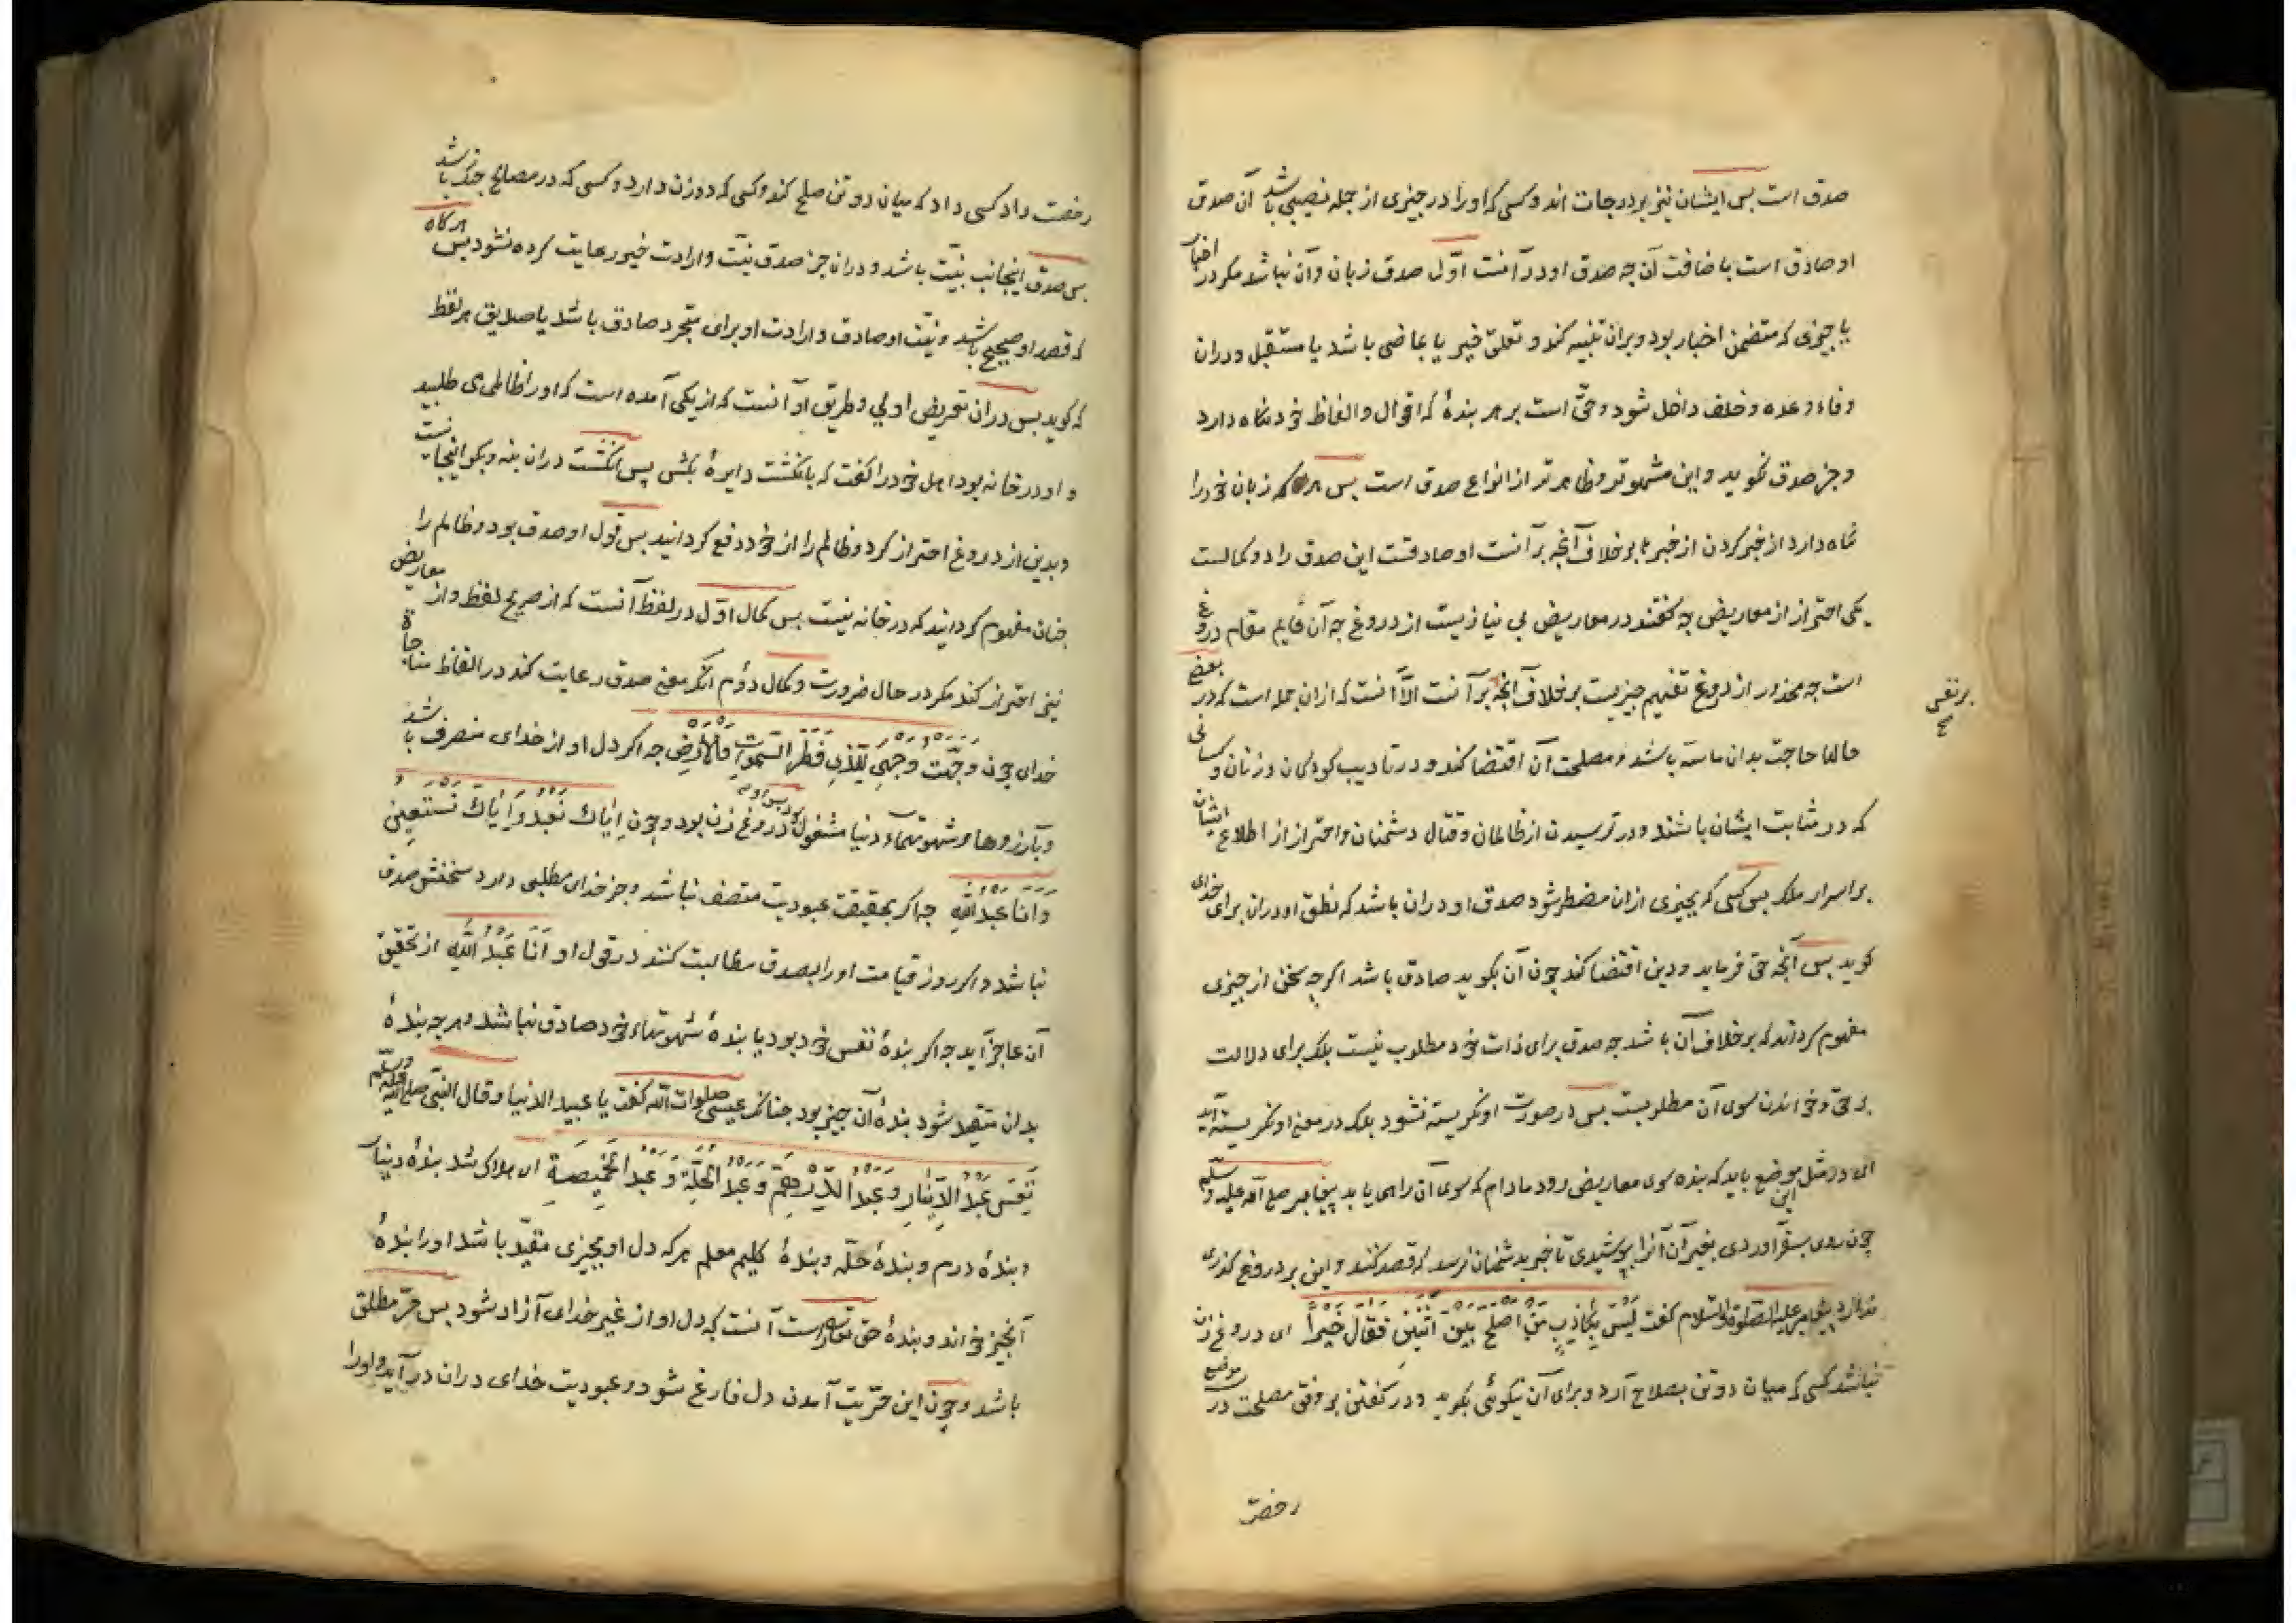 صدق است بس ایشان نیز بر درجات اند و کسی که او را در چیزی از جمله نصیبی باشد آن صدق
او صادق است باضافت آن چه صدق او در آنست اوّل صدق زبان وآن نباشد مکر در اخبار
یا چیزی که متضمن اخبار بود و بران تنبیه کند و تعلق خبر یا بماضی باشد یا مستقبل و دران
وفاء وعده و خلف داخل شود و حقّ است بر هر بندۀ که اقوال و الفاظ خود نکاه دارد
و جز صدق نکوید و این مشهوتر و ظاهرتر از انواع صدق است بس هر که زبان خود را
نکاه دارد از خبر کردن از خبرها بر خلاف آنچه بر آنست او صادقست این صدق را دو کمالست
یکی احتراز از معاریض چه کفتند در معاریض بی نیازیست از دروغ چه آن قایم مقام دروغ
است چه محذور از دروغ تفهیم چیزیست بر خلاف آنچه بر آنست الّا آنست که ازان جمله است که در بعضی
حالها حاجت بدان ماسّه باشد و مصلحت آن اقتضا کند و در تادیب کودکان و زنان و کسانی
که در مثابت ایشان باشند و در ترسیدن از ظالمان و قتال دشمنان و احتراز از اطلاع ایشان
بر اسرار ملک بس کسی که بچیزی ازان مضطر شود صدق او دران باشد که نطق او دران برای خدای
کوید بس آنچه حق فرماید و دین اقتضا کند چون آن بکوید صادق باشد اکرچه سخن از چیزی
مفهوم کرداند که بر خلاف آن باشد چه صدق برای ذات خود مطلوب نیست بلک برای دلالت
بر حق و خواندن سوی آن مطلوبست بس در صورت او نکریسته نشود بلک در معنی او نکریسته آید
ای در مثل این موضع باید که بنده سوی معاریض رود مادام که سوی آن راهی یابد پیغامبر صلی الله علیه و سلّم
چون روی بسفر آوردی بغیر آن آنرا بپوشیدی تا خبر بدشمنان نرسد که قصد کنند و این بر دروغ کذری
ندارد پیغامبر علیه الصلوة والسلام کفت لَیْسَ بِکاذِبٍ مَنْ اَصْلَحَ بَیْنَ اثْنَیْنِ فَقالَ خَیْراً ای دروغ زن
نباشد کسی که میان دو تن بصلاح آرد و برای آن نیکوئی بکوید و در کفتن بر وفق مصلحت در موضع
رخصت
بر نفس
صح
رخصت داد کسی داد که میان دو تن صلح کند و کسی که دو زن دارد و کسی که در مصالح جنک باشد
بس صدق اینجا بنیّت باشد و دران جز صدق نیّت و ارادت خیر رعایت کرده نشود بس هرکاه
که قصد او صحیح باشد و نیّت او صادق و ارادت او برای خیر مجرد صادق باشد یا صدیق هر لفظ
که کوید بس دران تعریض اولی و طریق او آنست که از یکی آمده است که او را ظالمی می طلبید
و او در خانه بود اهل خود را کفت که بانکشت دایرۀ بکش پس انکشت دران بنه و بکو اینجا نیست
و بدین از دروغ احتراز کرد و ظالم را از خود دفع کردانید بس قول او صدق بود و ظالم را
چنان مفهوم کردانید که در خانه نیست بس کمال اوّل در لفظ آنست که از صریح لفظ و از معاریض
نیز احتراز کند مکر در حال ضرورت و کمال دوّم آنکه معنی صدق رعایت کند در الفاظ مناجاة
خدای چون وَجَّهْتُ وَجْهِیَ لِلَّذِی فَطَرَ السَّمٰوَاتِ وَالْاَرْضَ چه اکر دل او از خدای منصرف باشد
و بآرزوها و شهوتهاء دنیا مشغول دروغ زن بود و چون اِیّاکَ نَعْبُدُ وَ اِیّاکَ نَسْتَعِینُ
وَ اَنَا عَبْدُ اللهِ چه اکر بحقیقت عبودیت متصف نباشد و جز خدای مطلبی دارد سخنش صدق
نباشد و اکر روز قیامت او را بصدق مطالبت کنند در قول او اَنَا عَبْدُ اللهِ از تحقیق
آن عاجز آید چه اکر بندۀ نفس خود بود یا بندۀ شهوتهاء خود صادق نباشد و هرچه بندۀ
بدان متقید شود بندۀ آن چیز بود چنانکه عیسی صلوات الله کفت یا عبید الدنیا و قال النّبی صلی الله علیه و سلّم
تَعِسَ عَبْدُ الدِّینارِ وَ عَبْدُ الدِّرْهَمِ وَ عَبْدُ الْحُلَّةِ وَ عَبْدُ الْخَمِیصَةِ ای هلاک شد بندۀ دینار
و بندۀ درم و بندۀ حلّه و بندۀ کلیم معلم هر که دل او بچیزی مقیّد باشد او را بندۀ
آنچیز خواند و بندۀ حق تعالی راست آنست که دل او از غیر خدای آزاد شود بس حرّ مطلق
باشد و چون این حرّیت آمدن دل فارغ شود و عبودیت خدای دران درآید و او را